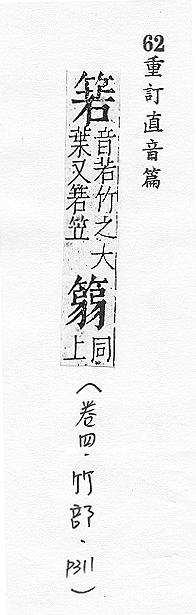 62 重訂直音篇
箬
音若竹之大
葉又箬笠
篛
同
上
(卷四·竹部·P311)